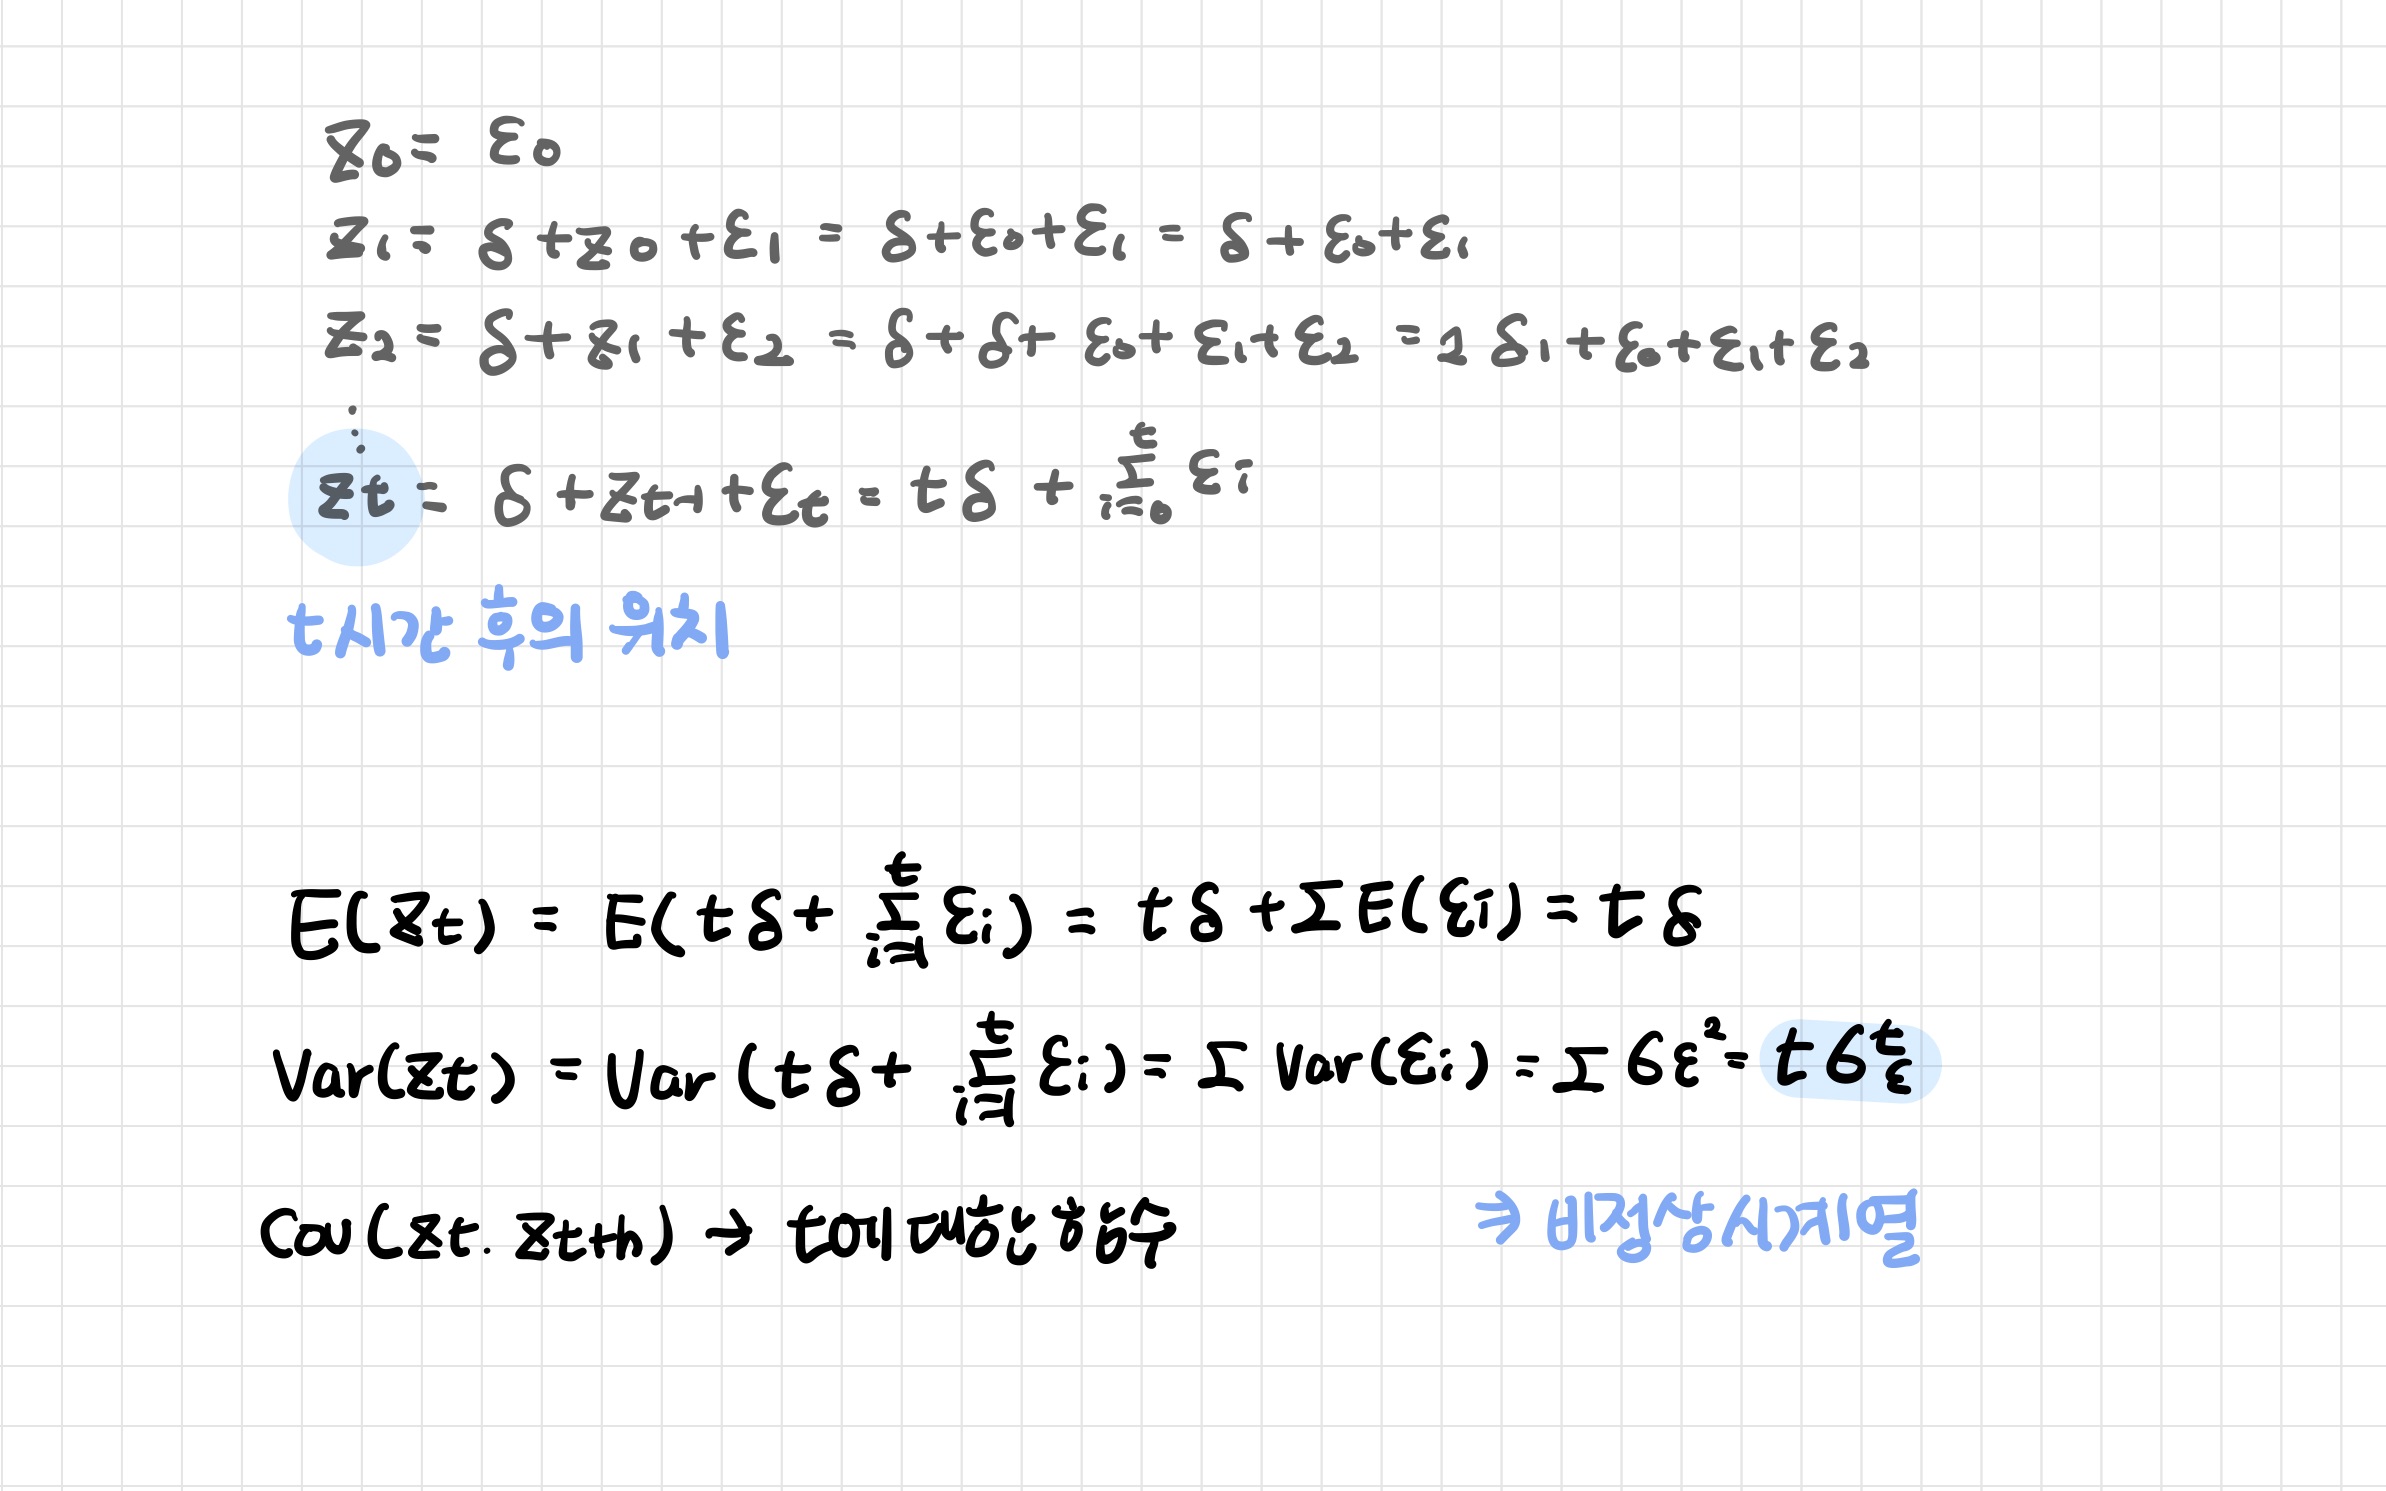 Z₀ = ε₀
Z₁ = δ + Z₀ + ε₁ = δ + ε₀ + ε₁ = δ + ε₀ + ε₁
Z₂ = δ + Z₁ + ε₂ = δ + δ + ε₀ + ε₁ + ε₂ = 2δ₁ + ε₀ + ε₁ + ε₂
⋮
Zt = δ + Zt-1 + εt = tδ + Σ_{i=0}^{t} εi
t시간 후의 위치
E(Zt) = E(tδ + Σ_{i=1}^{t} εi) = tδ + ΣE(εi) = tδ
Var(Zt) = Var(tδ + Σ_{i=1}^{t} εi) = Σ Var(εi) = Σ σε² = tσ_ε^t
Cov(Zt. Zt+h) → t에 대한 함수
→ 비정상 시계열